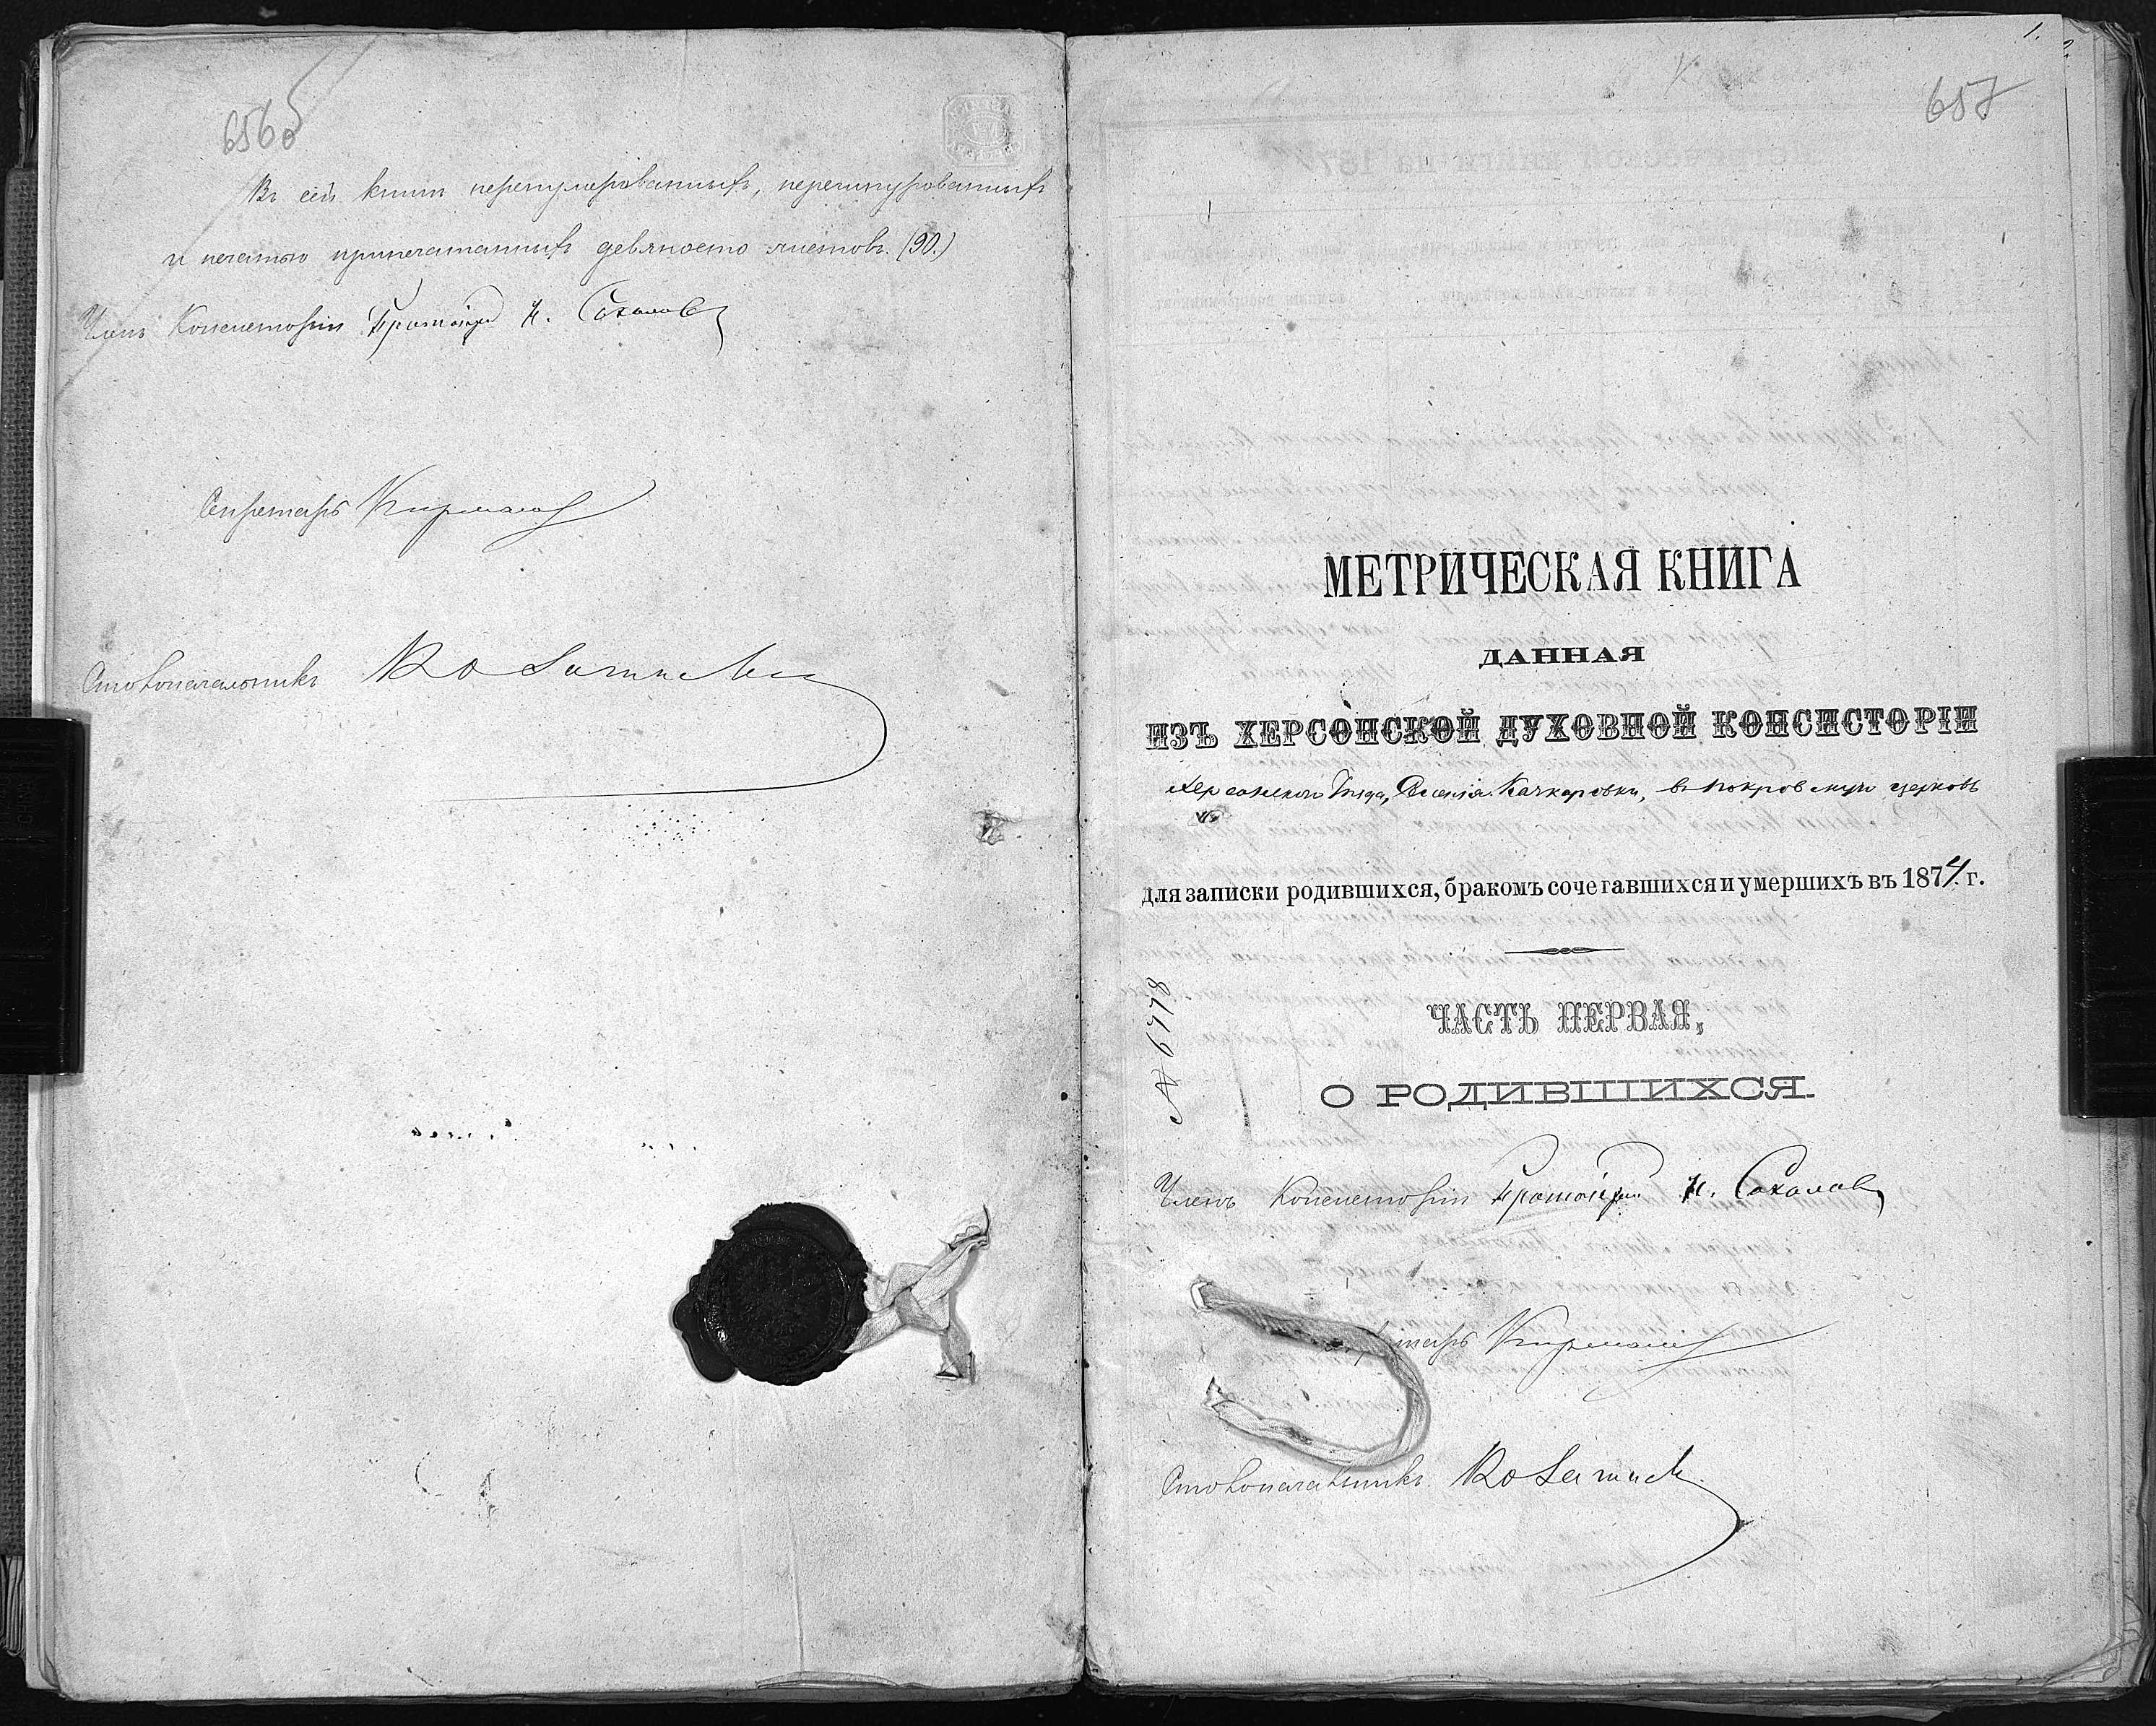 656об
Въ сей книгѣ перенумерованныхъ, перешнурованныхъ
и печатью припечатанныхъ девяносто листовъ. (90.)
Членъ Консисторіи Протоіерей Н. Соколовъ
Секретарь
Столоначальникъ
1.
657
МЕТРИЧЕСКАЯ КНИГА
ДАННАЯ
ИЗЪ ХЕРСОНСКОЙ ДУХОВНОЙ КОНСИСТОРІИ
Херсонскаго Уѣзда, Селенія Качкаровки, въ Покровскую церковь
для записки родившихся, бракомъ сочетавшихся и умершихъ въ 1874. г.
ЧАСТЬ ПЕРВАЯ,
О РОДИВШИХСЯ.
№ 6778
Членъ Консисторіи Протоіерей Н. Соколовъ
Столоначальникъ